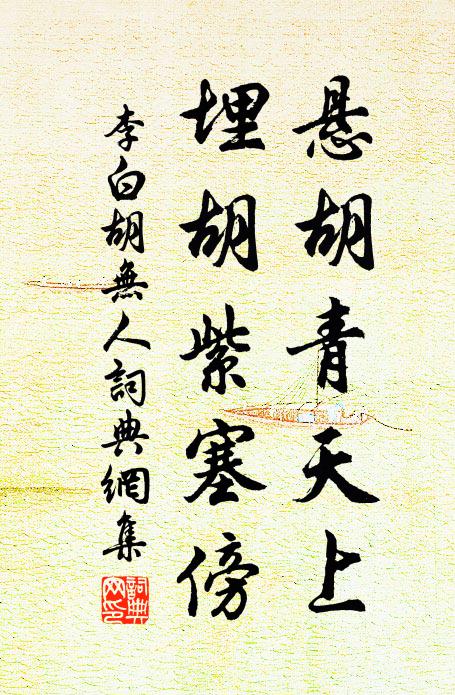 悬胡青天上
埋胡紫塞傍
李白胡無人詞典網集
詞典网印